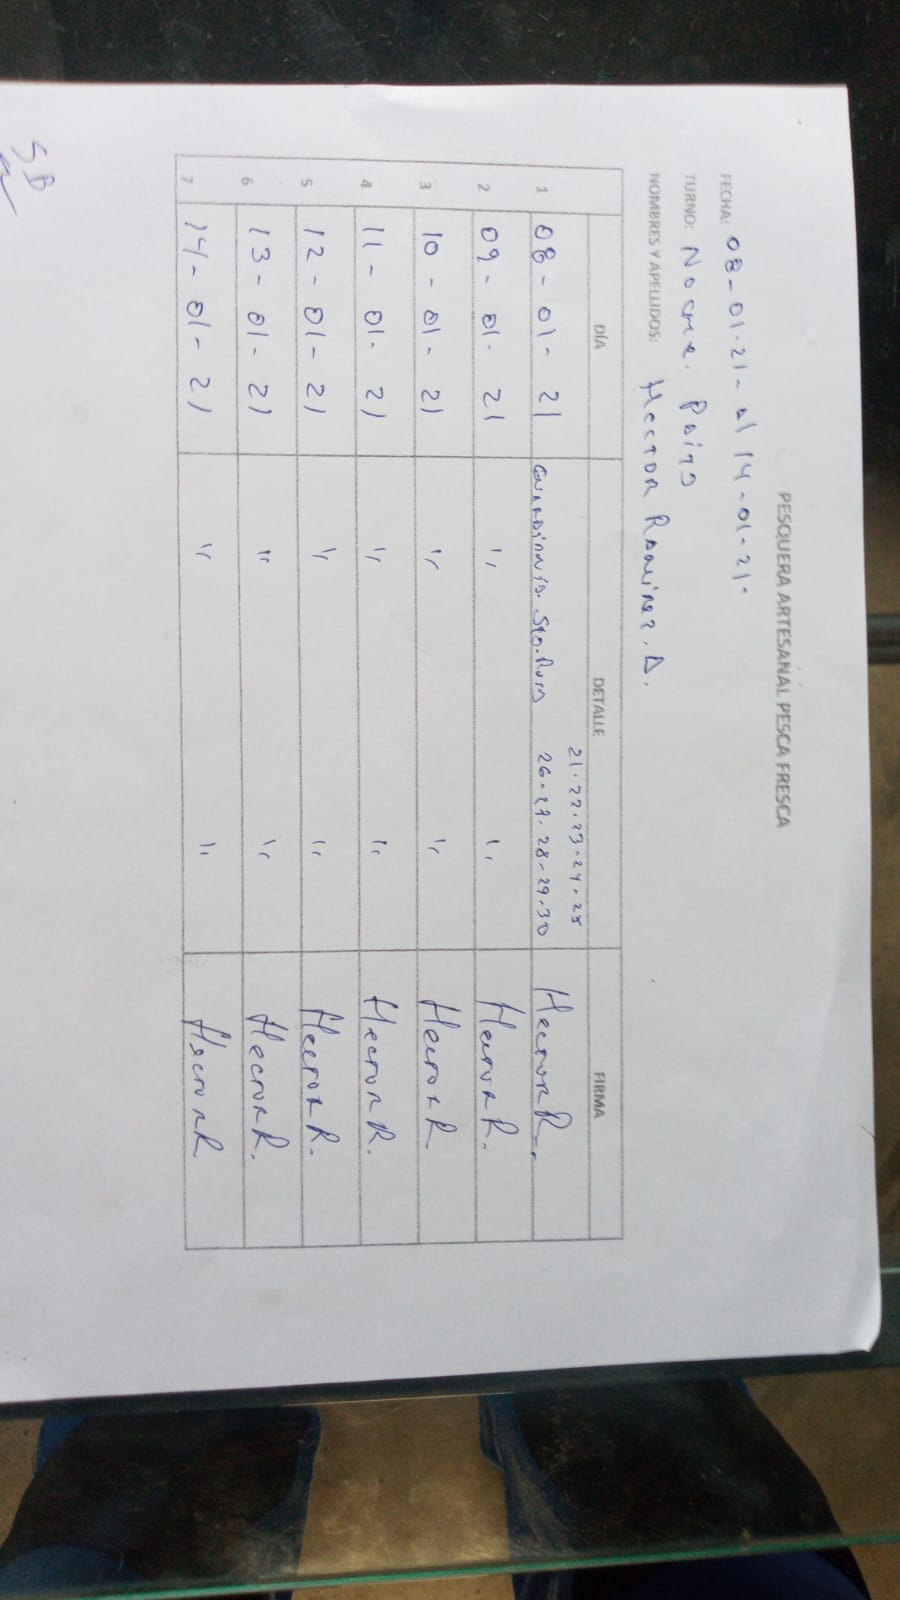 PESQUERA ARTESANAL PESCA FRESCA
FECHA: 08-01-21- al 14-01-21.
TURNO: Nocme.
NOMBRES Y APELLIDOS: Hector Ramirez. D.
DÍA DETALLE FIRMA
21.22.23-24-25
1 08-01-21 26-27-28-29-30 Hector R.
2 09-01-21 " " Hector R.
3 10-01-21 " " Hector R
4 11-01-21 " " Hector R.
5 12-01-21 " " Hector R.
6 13-01-21 " " Hector R.
7 14-01-21 " " Hector R
SB